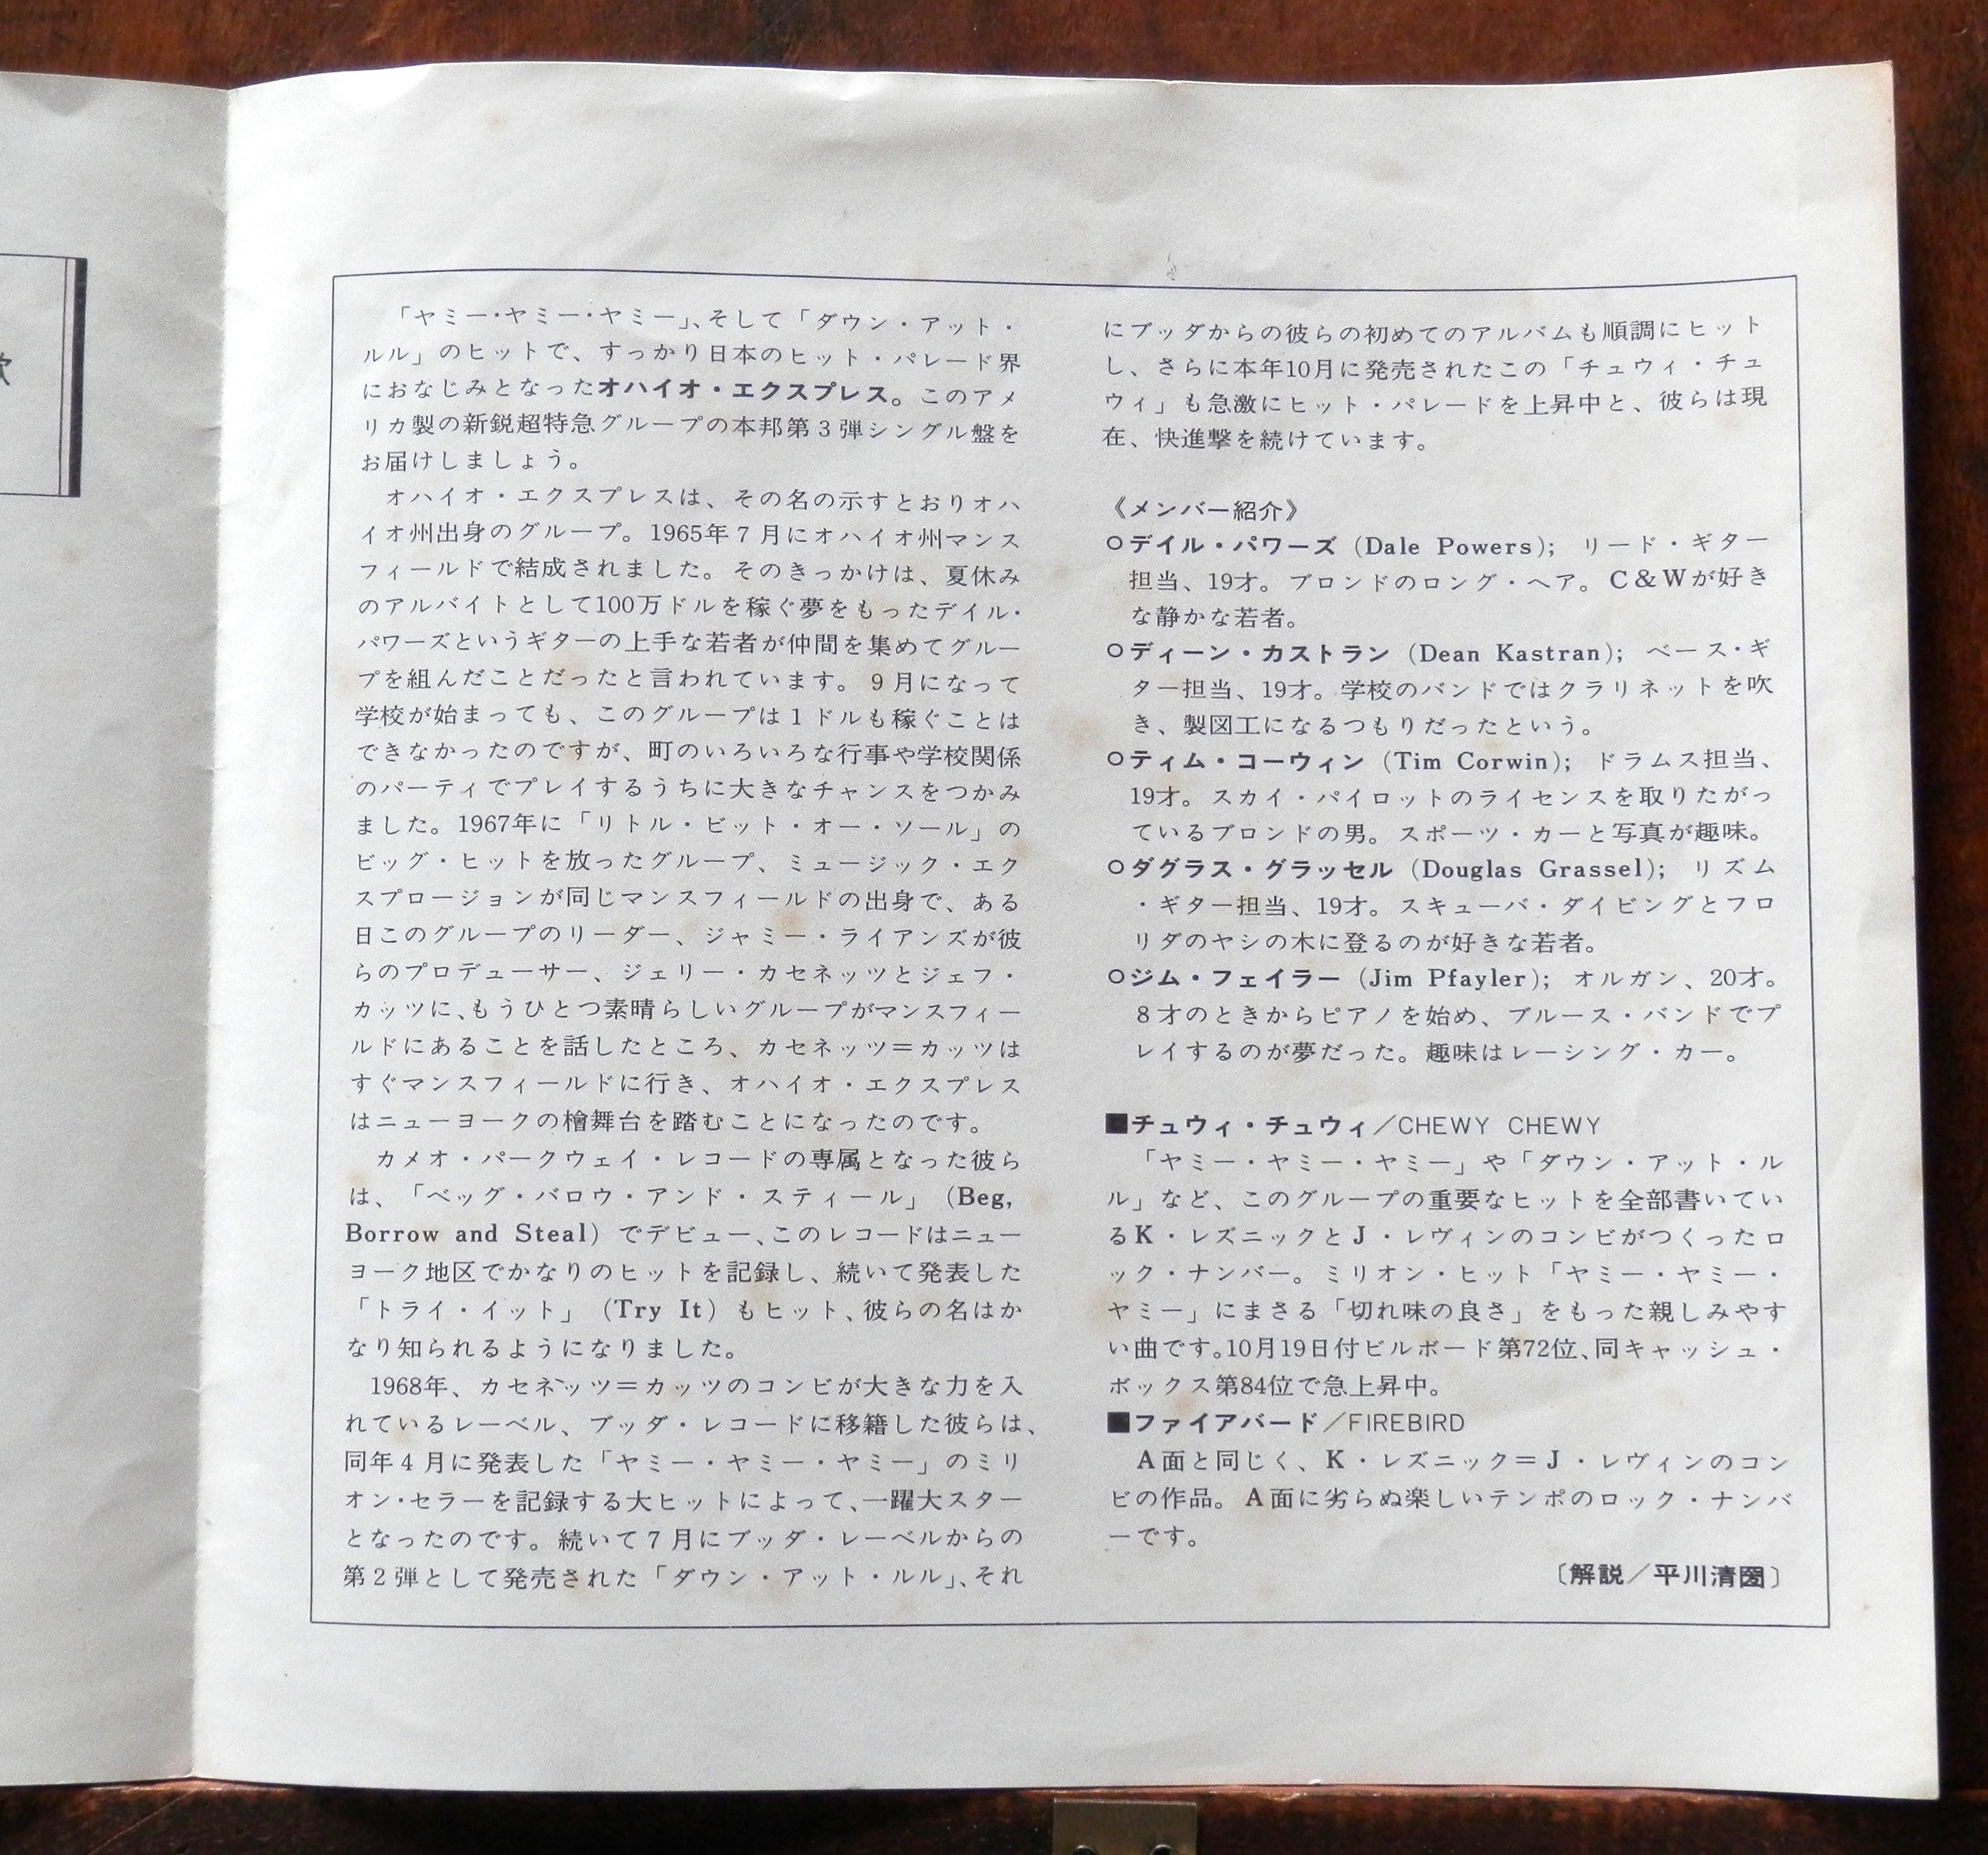 歌
「ヤミー・ヤミー・ヤミー」、そして「ダウン・アット・
ルル」のヒットで、すっかり日本のヒット・パレード界
におなじみとなったオハイオ・エクスプレス。このアメ
リカ製の新鋭超特急グループの本邦第3弾シングル盤を
お届けしましょう。
オハイオ・エクスプレスは、その名の示すとおりオハ
イオ州出身のグループ。1965年7月にオハイオ州マンス
フィールドで結成されました。そのきっかけは、夏休み
のアルバイトとして100万ドルを稼ぐ夢をもったデイル・
パワーズというギターの上手な若者が仲間を集めてグルー
プを組んだことだったと言われています。9月になって
学校が始まっても、このグループは1ドルも稼ぐことは
できなかったのですが、町のいろいろな行事や学校関係
のパーティでプレイするうちに大きなチャンスをつかみ
ました。1967年に「リトル・ビット・オー・ソール」の
ビッグ・ヒットを放ったグループ、ミュージック・エク
スプロージョンが同じマンスフィールドの出身で、ある
日このグループのリーダー、ジャミー・ライアンズが彼
らのプロデューサー、ジェリー・カセネッツとジェフ・
カッツに、もうひとつ素晴らしいグループがマンスフィー
ルドにあることを話したところ、カセネッツ=カッツは
すぐマンスフィールドに行き、オハイオ・エクスプレス
はニューヨークの檜舞台を踏むことになったのです。
カメオ・パークウェイ・レコードの専属となった彼ら
は、「ベッグ・バロウ・アンド・スティール」(Beg,
Borrow and Steal)でデビュー、このレコードはニュー
ヨーク地区でかなりのヒットを記録し、続いて発表した
「トライ・イット」(Try It)もヒット、彼らの名はか
なり知られるようになりました。
1968年、カセネッツ=カッツのコンビが大きな力を入
れているレーベル、ブッダ・レコードに移籍した彼らは、
同年4月に発表した「ヤミー・ヤミー・ヤミー」のミリ
オン・セラーを記録する大ヒットによって、一躍大スター
となったのです。続いて7月にブッダ・レーベルからの
第2弾として発売された「ダウン・アット・ルル」、それ
にブッダからの彼らの初めてのアルバムも順調にヒット
し、さらに本年10月に発売されたこの「チュウィ・チュ
ウィ」も急激にヒット・パレードを上昇中と、彼らは現
在、快進撃を続けています。
《メンバー紹介》
○デイル・パワーズ(Dale Powers); リード・ギター
担当、19才。ブロンドのロング・ヘア。C&Wが好き
な静かな若者。
○ディーン・カストラン(Dean Kastran); ベース・ギ
ター担当、19才。学校のバンドではクラリネットを吹
き、製図工になるつもりだったという。
○ティム・コーウィン(Tim Corwin); ドラムス担当、
19才。スカイ・パイロットのライセンスを取りたがっ
ているブロンドの男。スポーツ・カーと写真が趣味。
○ダグラス・グラッセル(Douglas Grassel); リズム
・ギター担当、19才。スキューバ・ダイビングとフロ
リダのヤシの木に登るのが好きな若者。
○ジム・フェイラー(Jim Pfayler); オルガン、20才。
8才のときからピアノを始め、ブルース・バンドでプ
レイするのが夢だった。趣味はレーシング・カー。
■チュウィ・チュウィ/CHEWY CHEWY
「ヤミー・ヤミー・ヤミー」や「ダウン・アット・ル
ル」など、このグループの重要なヒットを全部書いてい
るK・レズニックとJ・レヴィンのコンビがつくったロ
ック・ナンバー。ミリオン・ヒット「ヤミー・ヤミー・
ヤミー」にまさる「切れ味の良さ」をもった親しみやす
い曲です。10月19日付ビルボード第72位、同キャッシュ・
ボックス第84位で急上昇中。
■ファイアバード/FIREBIRD
A面と同じく、K・レズニック=J・レヴィンのコン
ビの作品。A面に劣らぬ楽しいテンポのロック・ナンバ
ーです。
〔解説/平川清圀〕